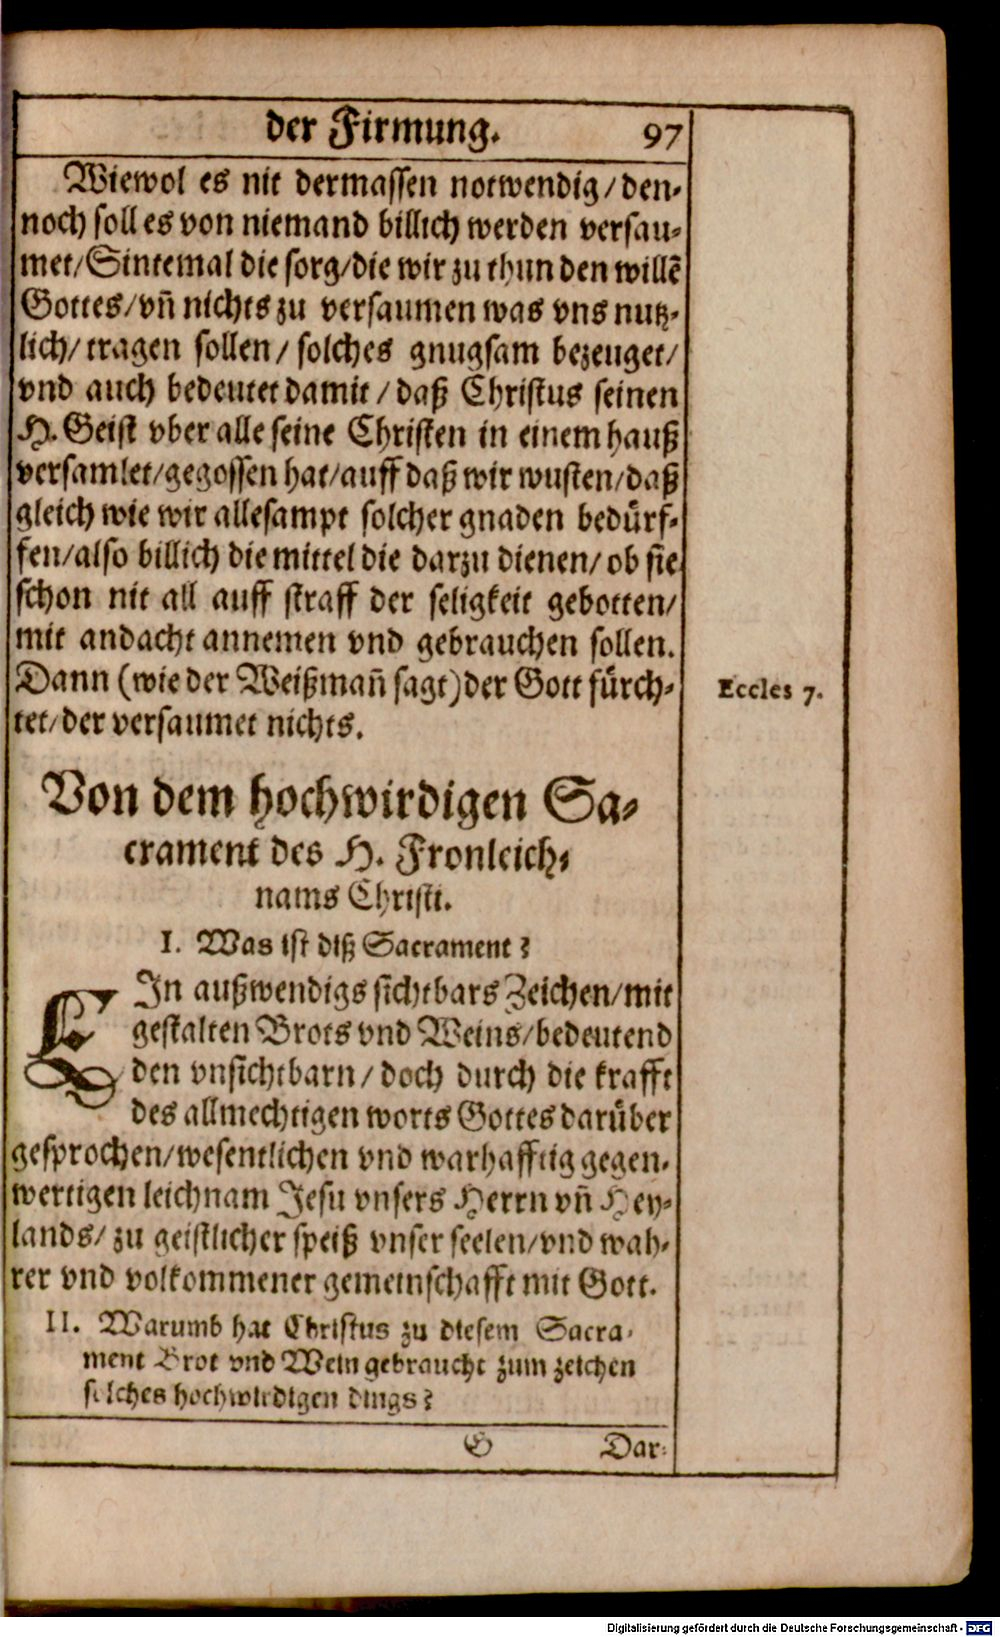 der Firmung. 97
Wiewol es nit dermassen notwendig/ den-
noch soll es von niemand billich werden versau-
met/ Sintemal die sorg/ die wir zu thun den willē
Gottes/ vn̄ nichts zu versaumen was vns nutz-
lich/ tragen sollen/ solches gnugsam bezeuget/
vnd auch bedeutet damit/ daß Christus seinen
H. Geist vber alle seine Christen in einem hauß
versamlet/ gegossen hat/ auff daß wir wusten/ daß
gleich wie wir allesampt solcher gnaden bedürf-
fen/ also billich die mittel die darzu dienen/ ob sie
schon nit all auff straff der seligkeit gebotten/
mit andacht annemen vnd gebrauchen sollen.
Dann (wie der Weißman̄ sagt) der Gott fürch-
tet/ der versaumet nichts.
Eccles 7.
Von dem hochwirdigen Sa-
crament des H. Fronleich-
nams Christi.
I. Was ist diß Sacrament?
EIn außwendigs sichtbars Zeichen/ mit
gestalten Brots vnd Weins/ bedeutend
den vnsichtbarn/ doch durch die krafft
des allmechtigen worts Gottes darüber
gesprochen/ wesentlichen vnd warhafftig gegen-
wertigen leichnam Jesu vnsers Herrn vn̄ Hey-
lands/ zu geistlicher speiß vnser seelen/ vnd wah-
rer vnd volkommener gemeinschafft mit Gott.
II. Warumb hat Christus zu diesem Sacra-
ment Brot vnd Wein gebraucht zum zeichen
solches hochwirdigen dings?
G Dar-
Digitalisierung gefördert durch die Deutsche Forschungsgemeinschaft - DFG